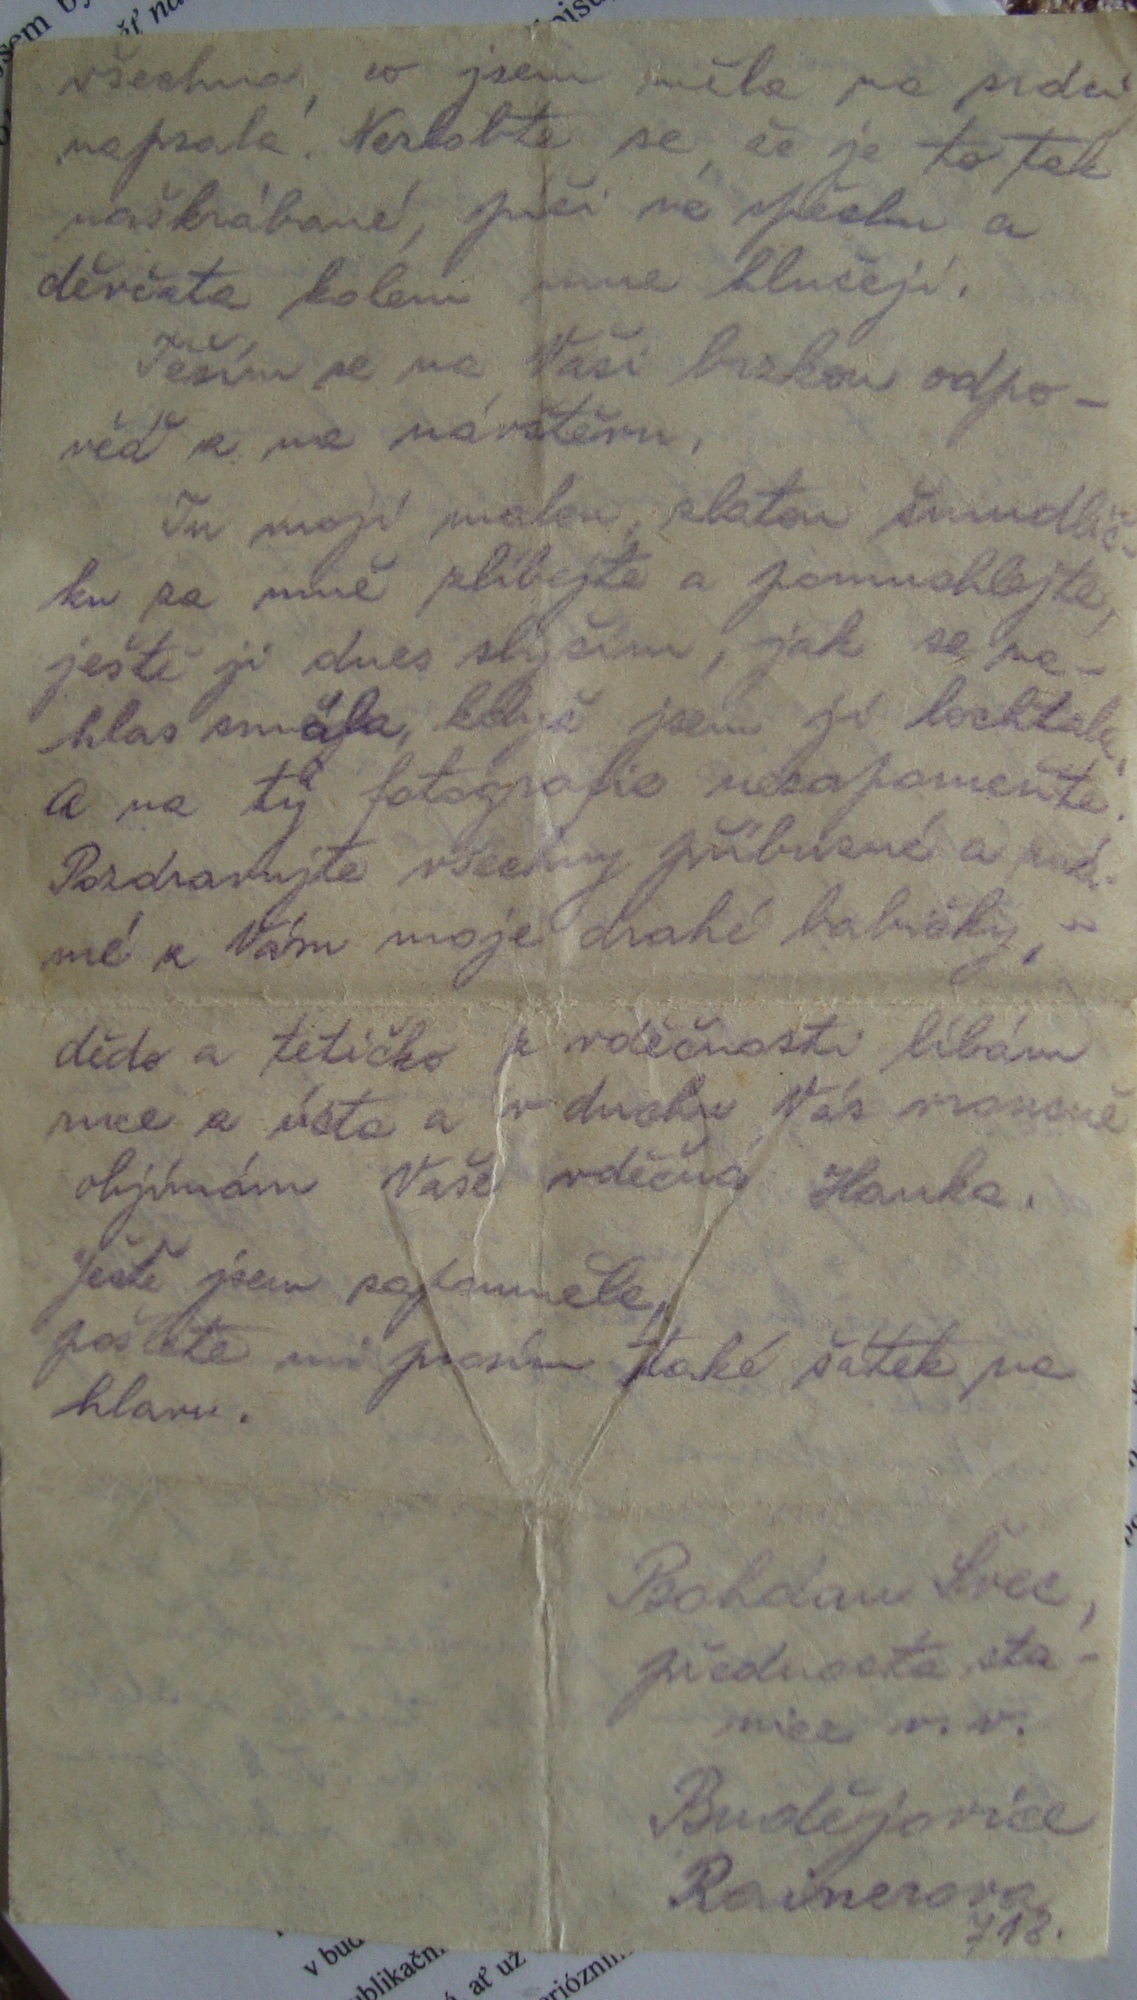 jsem
všechno, co jsem měla na srdci
napsala. Nezlobte se, že je to tak
naškrábané, píši ve spěchu a
děvčata kolem mne hlučejí.
Těším se na Vaši brzkou odpo-
věď a na návštěvu.
Tu moji malou, zlatou šmudlič-
ku za mně zlíbejte a pomuchlejte,
ještě ji dnes slyším, jak se na-
hlas smála, když jsem ji lochtala.
A na tý fotografie nezapomeňte.
Pozdravujte všechny příbuzné a zná-
mé a Vám moje drahé babičky,
dědo a tetičko z vděčnosti líbám
ruce a ústa a v duchu Vás vroucně
objímám Vaše vděčná Hanka.
Ještě jsem zapomněla,
pošlete mi prosím také šátek na
hlavu.
Bohdan Švec,
přednosta sta-
nice v. v.
Budějovice
Rainerova
718.
v bud
ublikačn
ať už
eriózním